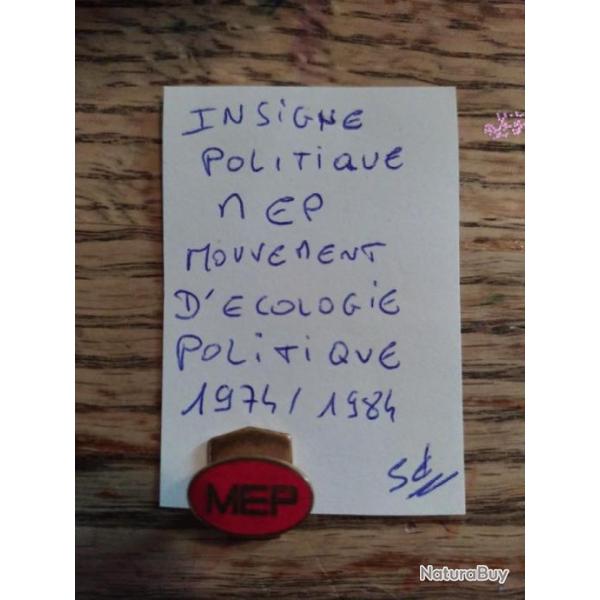 INSIGNE
POLITIQUE
MEP
MOUVEMENT
D'ECOLOGIE
POLITIQUE
1974/1984
MEP
NaturaBuy